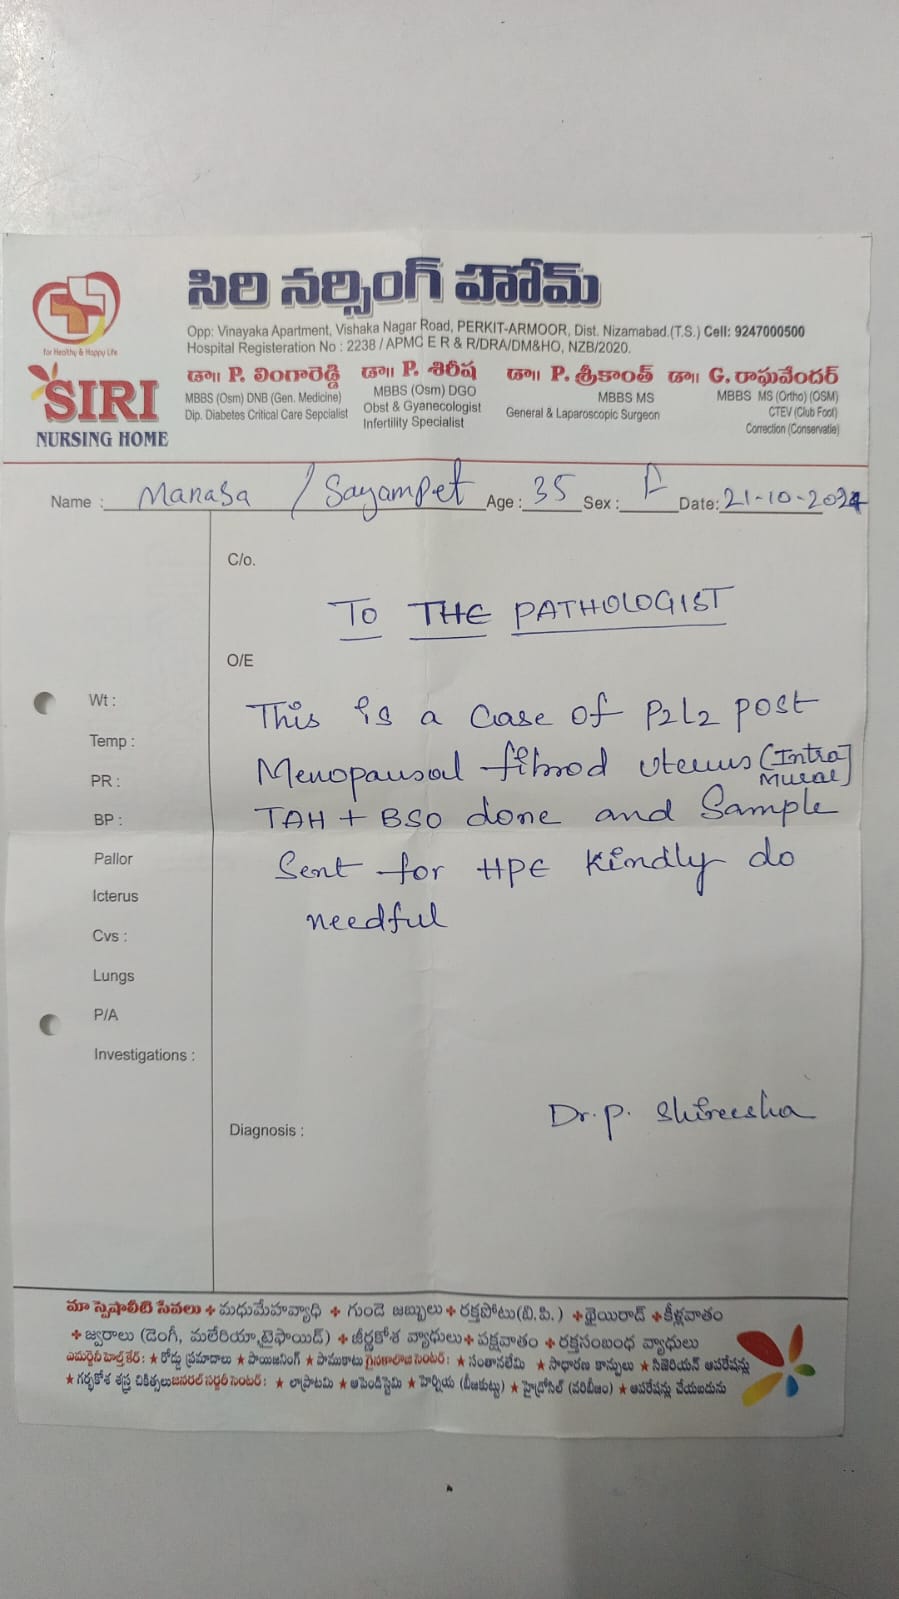 సిరి నర్సింగ్ హోమ్
Opp: Vinayaka Apartment, Vishaka Nagar Road, PERKIT-ARMOOR, Dist. Nizamabad.(T.S.) Cell: 9247000500
Hospital Registeration No : 2238 / APMC E R & R/DRA/DM&HO, NZB/2020.
for Healthy & Happy Life
SIRI
NURSING HOME
డా॥ P. లింగారెడ్డి
MBBS (Osm) DNB (Gen. Medicine)
Dip. Diabetes Critical Care Sepcialist
డా॥ P. శిరీష
MBBS (Osm) DGO
Obst & Gyanecologist
Infertility Specialist
డా॥ P. శ్రీకాంత్
MBBS MS
General & Laparoscopic Surgeon
డా॥ G. రాఘవేందర్
MBBS MS (Ortho) (OSM)
CTEV (Club Foot)
Correction (Conservatie)
Name : Manasa / Sayampet Age : 35 Sex : F Date: 21-10-2024
C/o.
TO THE PATHOLOGIST
O/E
This is a case of P2L2 post
Menopausal fibrod uterus [Intra
Mural]
TAH + BSO done and Sample
Sent for HPE Kindly do
needful
Wt :
Temp :
PR :
BP :
Pallor
Icterus
Cvs :
Lungs
P/A
Investigations :
Dr. P. Shireesha
Diagnosis :
మా స్పెషాలిటి సేవలు + మధుమేహవ్యాధి + గుండె జబ్బులు + రక్తపోటు(బి.పి.) + థైయిరాడ్ + కీళ్లవాతం
+ జ్వరాలు (డెంగీ, మలేరియా,టైఫాయిడ్) + జీర్ణకోశ వ్యాధులు + పక్షవాతం + రక్తసంబంధ వ్యాధులు
ఎమర్జెన్సీ హెల్త్ కేర్: ★ రోడ్డు ప్రమాదాలు ★ పాయిజనింగ్ ★ పాముకాటు గైనకాలాజి సెంటర్: ★ సంతానలేమి ★ సాధారణ కాన్పులు ★ సిజెరియన్ ఆపరేషన్లు
★ గర్భకోశ శస్త్ర చికిత్సలు జనరల్ సర్జరీ సెంటర్: ★ లాప్రాటమి ★ అపెండిస్టెమి ★ హెర్నియ (బీజకుట్టు) ★ హైడ్రోసిల్ (వరిబీజం) ★ ఆపరేషన్లు చేయబడును